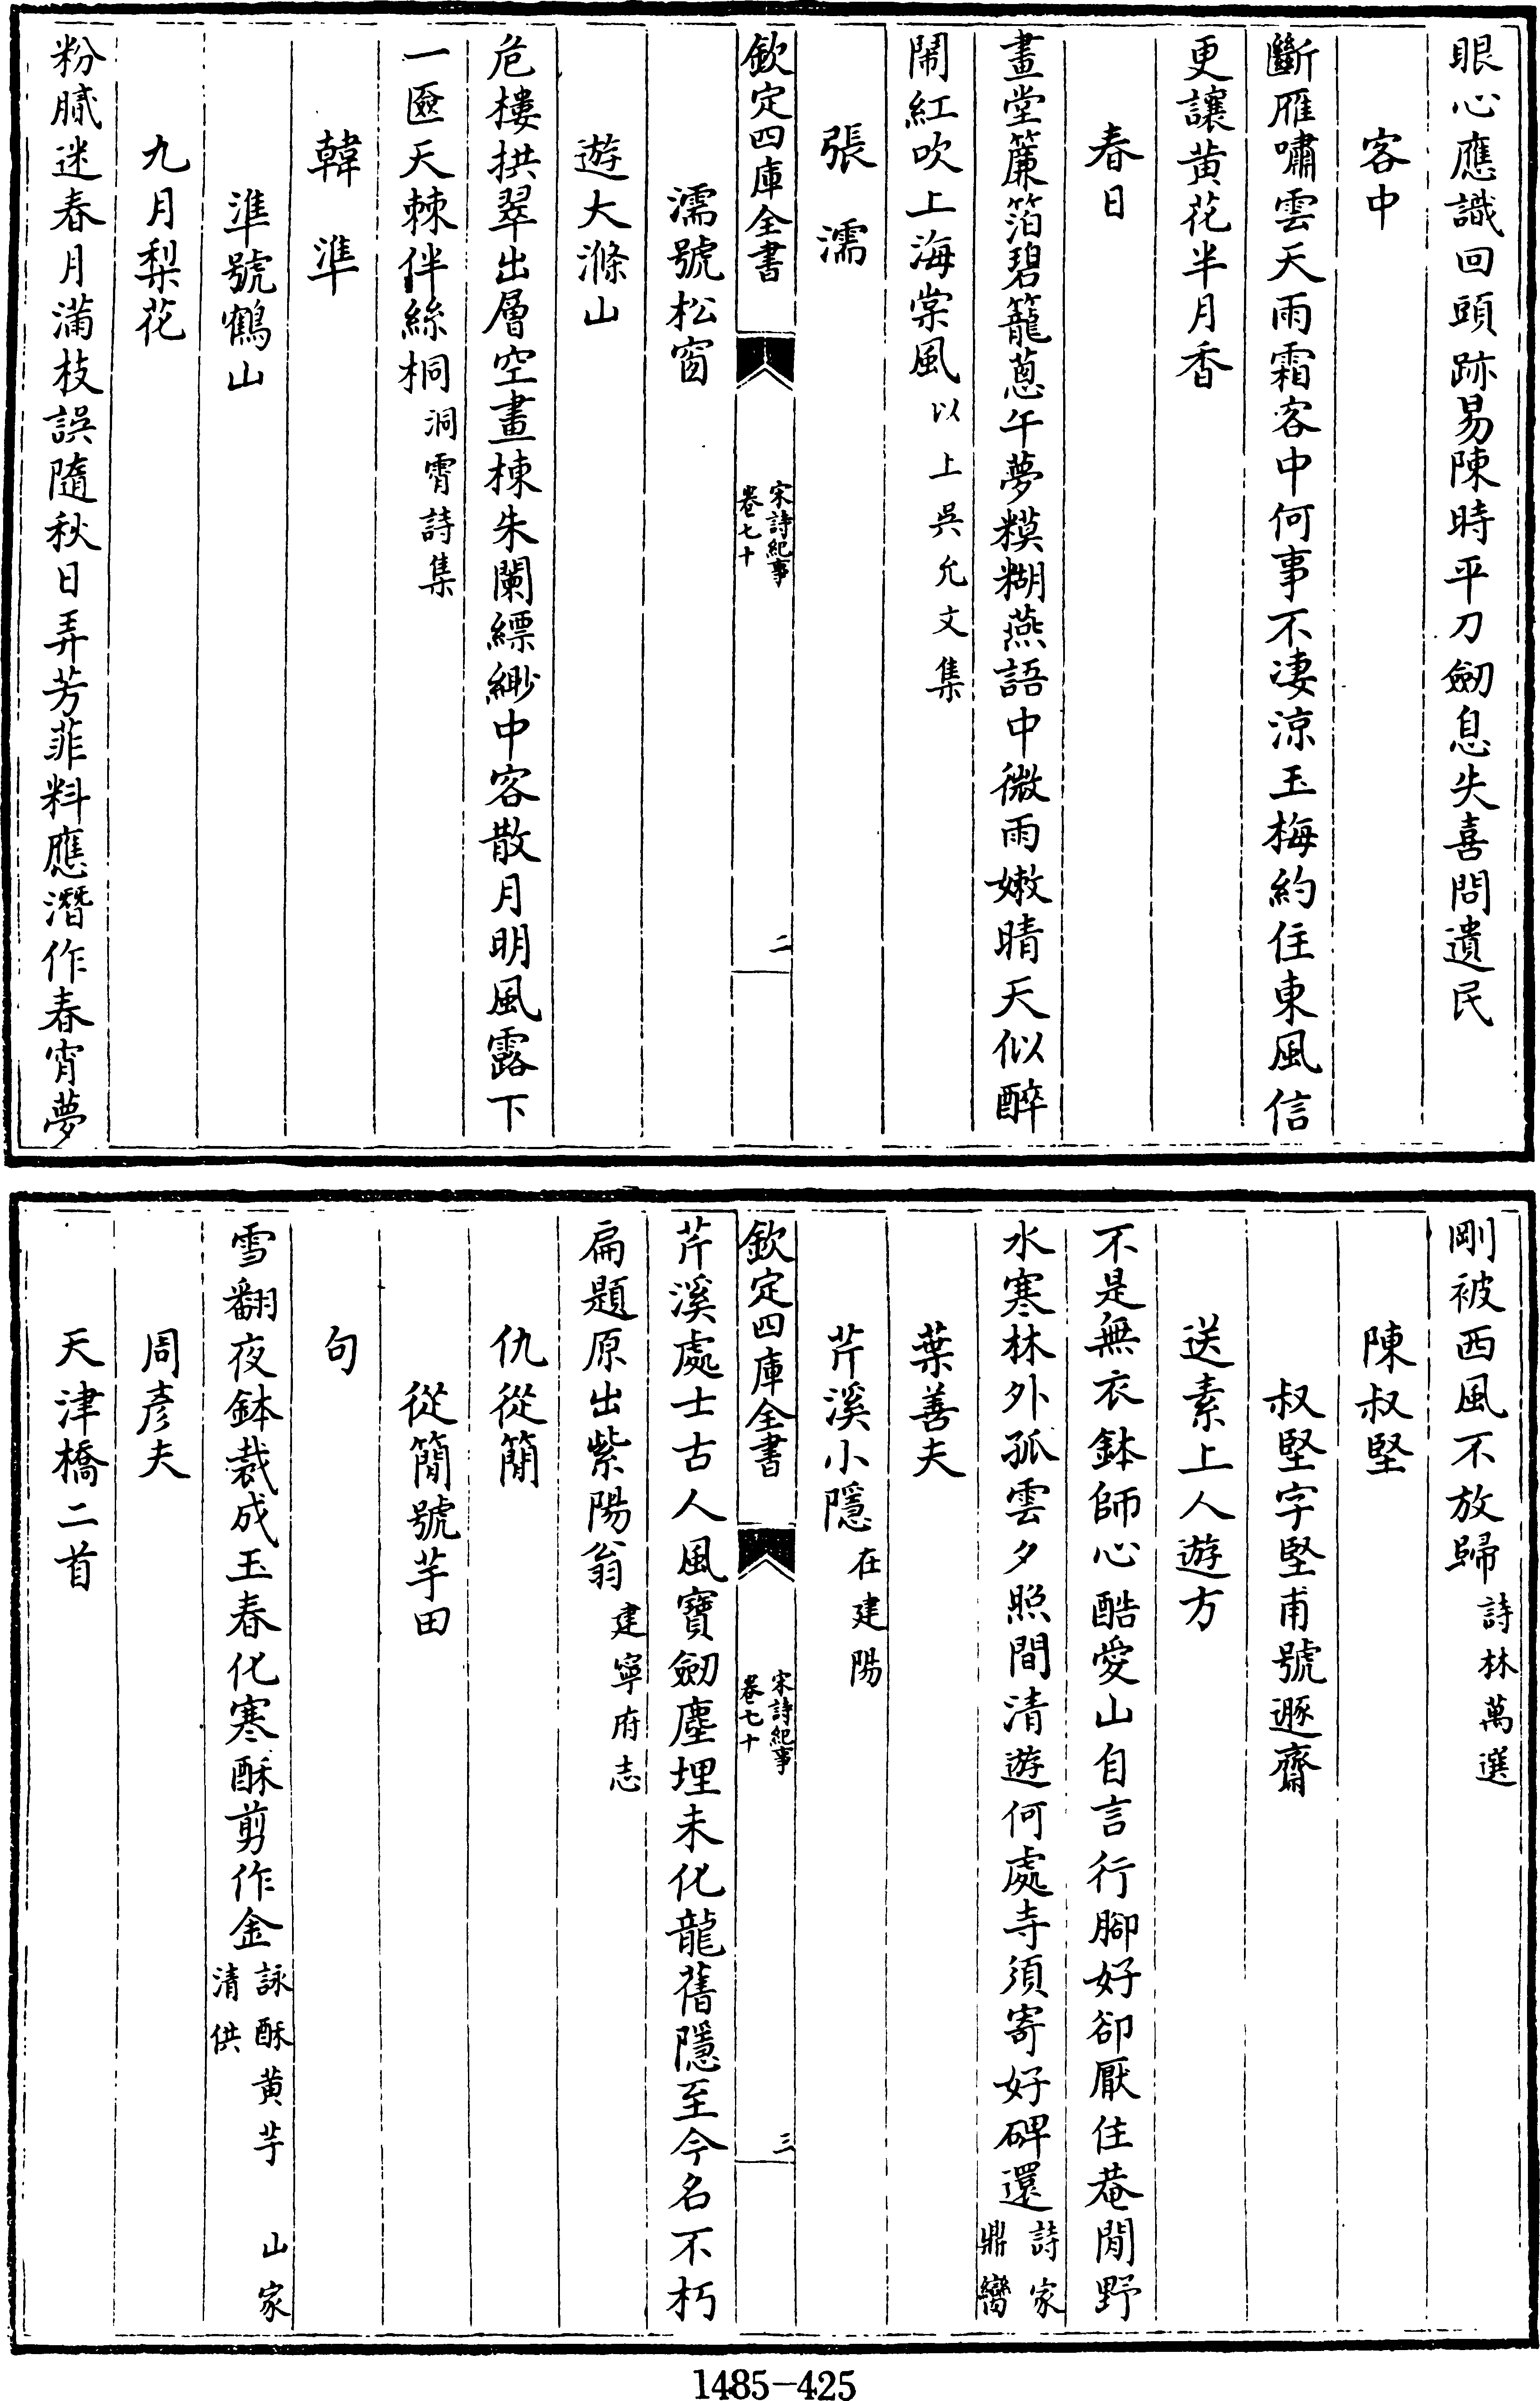 眼心應識回頭跡易陳時平刀劒息失喜問遺民
客中
斷雁嘯雲天雨霜客中何事不凄涼玉梅約住東風信
更讓黄花半月香
春日
畫堂簾箔碧籠蔥午夢糢糊燕語中微雨嫩晴天似醉
鬧紅吹上海棠風以上吳允文集
張濡
欽定四庫全書
宋詩紀事
卷七十
二
濡號松窗
遊大滌山
危樓拱翠出層空畫棟朱闌縹緲中客散月明風露下
一匳天棘伴絲桐洞霄詩集
韓準
準號鶴山
九月梨花
粉膩迷春月滿枝誤隨秋日弄芳菲料應潛作春宵夢
剛被西風不放歸詩林萬選
陳叔堅
叔堅字堅甫號遯齋
送素上人遊方
不是無衣鉢師心酷愛山自言行腳好卻厭住菴閒野
水寒林外孤雲夕照間清遊何處寺須寄好碑還詩家
鼎臠
葉善夫
芹溪小隱在建陽
欽定四庫全書
宋詩紀事
卷七十
三
芹溪處士古人風寶劒塵埋未化龍舊隱至今名不朽
扁題原出紫陽翁建寧府志
仇從簡
從簡號芋田
句
雪翻夜鉢裁成玉春化寒酥剪作金詠酥黄芋 山家
清供
周彥夫
天津橋二首
1485-425